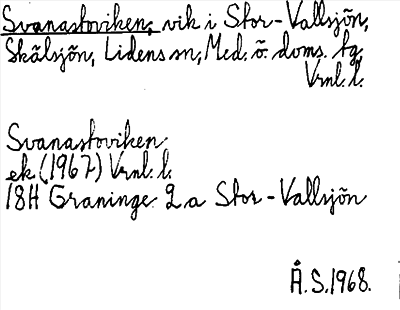 Svanastoviken, vik i Stor-Vallsjön,
Skälsjön, Lidens sn, Med. ö. doms. tg,
Vrnl. l.
Svanastoviken
ek (1967) Vrnl. l.
18H Graninge 2 a Stor-Vallsjön
Å.S. 1968.